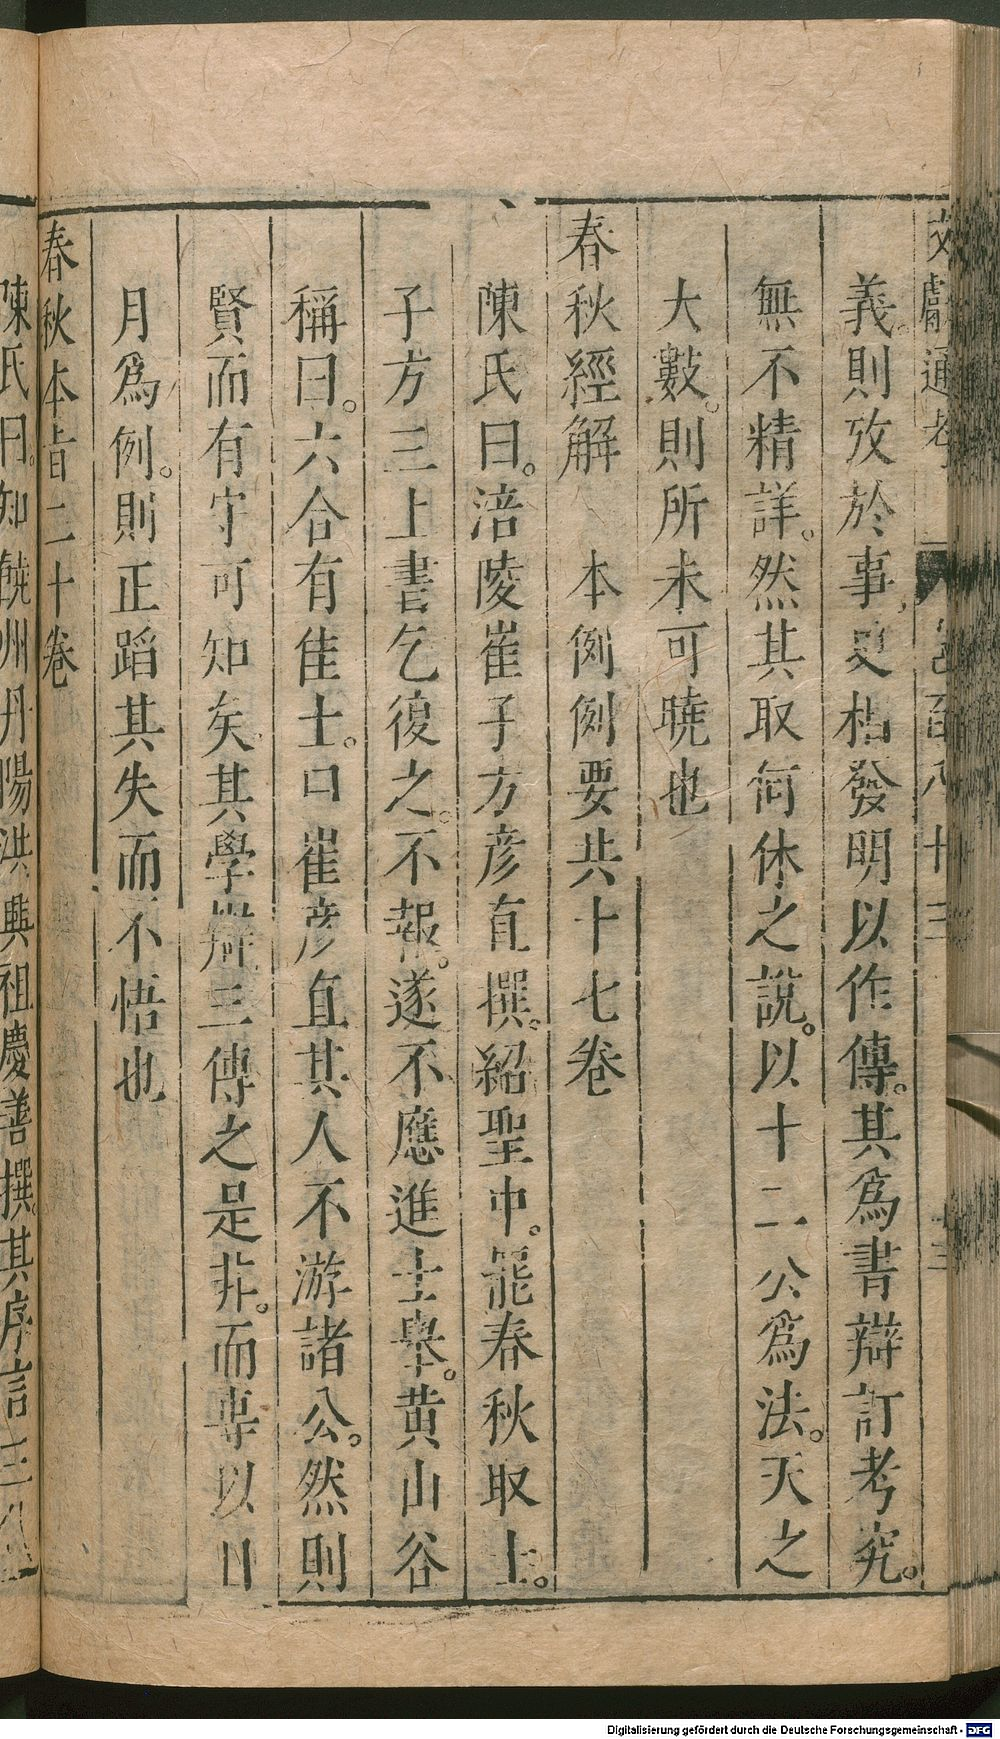 文獻通考 卷一百八十三 十三
義則攷於事更相發明以作傳。其爲書辯訂考究。
無不精詳。然其取何休之說。以十二公爲法。天之
大數。則所未可曉也
春秋經解 本例例要共十七卷
陳氏曰。涪陵崔子方彥直撰。紹聖中。罷春秋取士。
子方三上書乞復之。不報。遂不應進士舉。黄山谷
稱曰。六合有佳士。曰崔彥直其人不游諸公。然則
賢而有守可知矣其學辯三傳之是非。而專以日
月爲例。則正蹈其失而不悟也
春秋本旨二十卷
陳氏曰。知饒州丹陽洪興祖慶善撰。其序言三
Digitalisierung gefördert durch die Deutsche Forschungsgemeinschaft - DFG